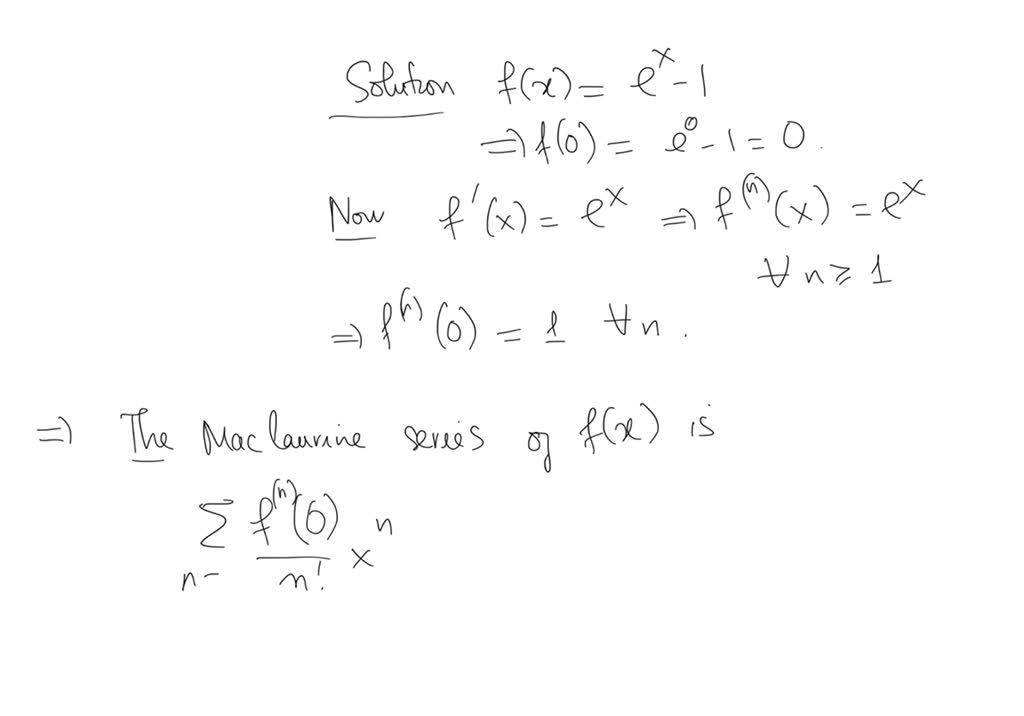 Solution f(x) = e^x - 1
⇒ f(0) = e^0 - 1 = 0.
Now f'(x) = e^x ⇒ f^(n)(x) = e^x
∀ n ≥ 1
⇒ f^(n)(0) = 1 ∀n.
⇒ The Maclaurine series of f(x) is
∑ f^(n)(0)/n! x^n
n-